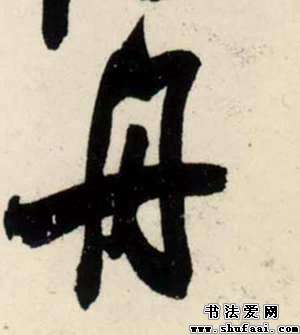 舟
书法爱网
www.shufaai.com